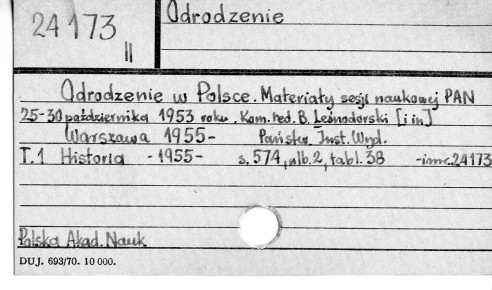 24173
II
Odrodzenie
Odrodzenie w Polsce. Materiały sesji naukowej PAN
25-30 października 1953 roku. Kom. red. B. Leśnodorski [i in]
Warszawa 1955- Państw. Inst. Wyd.
T.1 Historia - 1955 - s. 574, nlb. 2, tabl. 38 - inw. 24173
Polska Akad. Nauk
DUJ. 693/70. 10 000.